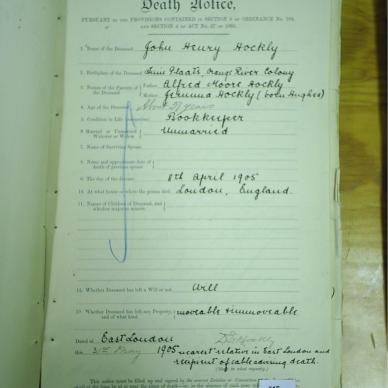 Death Notice,
PURSUANT to the PROVISIONS CONTAINED in SECTION 9 of ORDINANCE No. 104,
1 Name of the Deceased John Henry Hockly
2 Birthplace of the Deceased Plaats, Orange River Colony
3 Names of the Parents of the Deceased
Father Alfred Moore Hockly
Mother Jemima Hockly (born Hughes)
4 Age of the Deceased About 27 years
5 Condition in Life Bookkeeper
6 Married or Unmarried Widower or Widow Unmarried
7 Name of Surviving Spouse
8 Name and approximate date of death of previous spouse
9 The day of the decease 8th April 1905
10 At what house or where the person died London, England.
11 Names of Children of Deceased, and whether majors or minors
12 Whether Deceased has left a Will or not Will
13 Whether Deceased has left any Property, and of what kind moveable & immoveable
Dated at East London
this 31st May 1905 nearest relative in East London and
recipient of cable advising death.